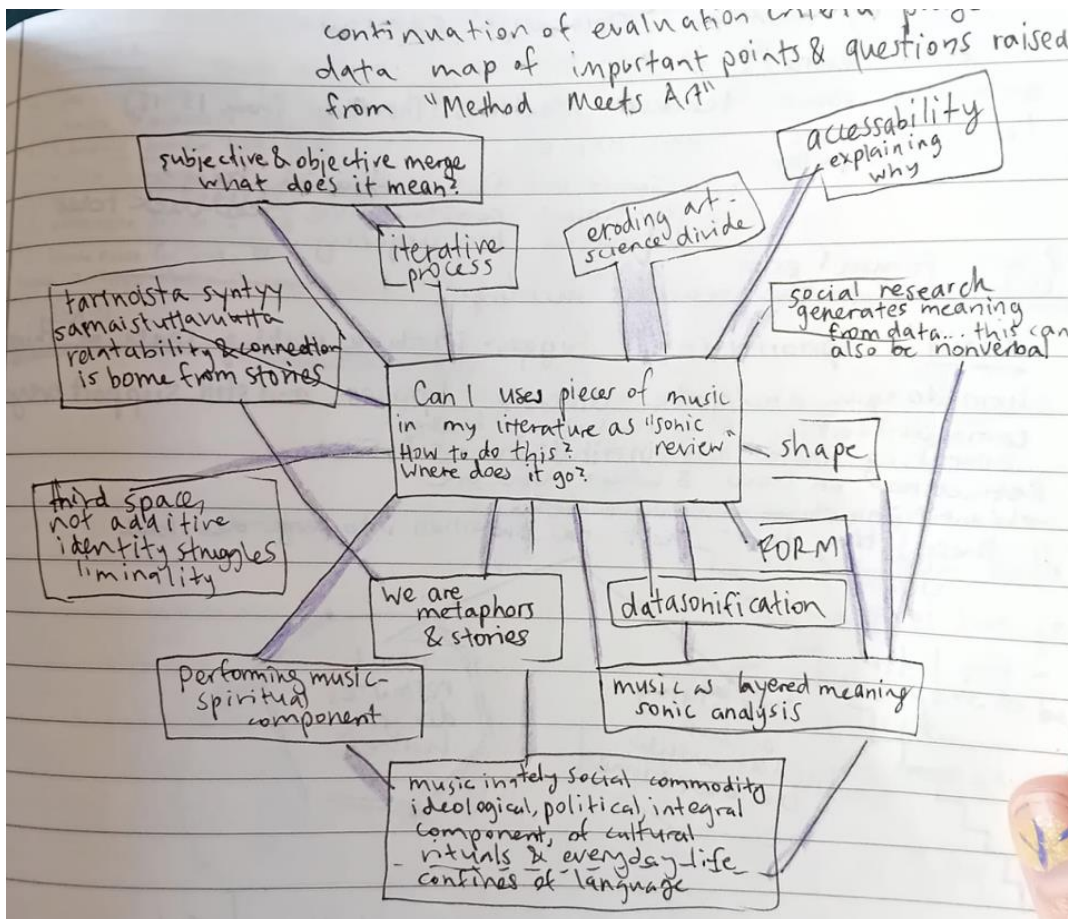 continuation of evaluation criteria
data map of important points & questions raised
from "Method Meets Art"
subjective & objective merge
what does it mean?
iterative
process
eroding art-
science divide
accessability
explaining
why
tarinoista syntyy
relatability & connection
is borne from stories
social research
generates meaning
from data... this can
also be nonverbal
Can I uses pieces of music
in my literature as "sonic
How to do this? review"
Where does it go?
shape
third space,
not additive
identity struggles
liminality
FORM
We are
metaphors
& stories
datasonification
performing music-
spiritual
component
music as layered meaning
sonic analysis
music inately social commodity
ideological, political, integral
component, of cultural
rituals & everyday life
confines of language